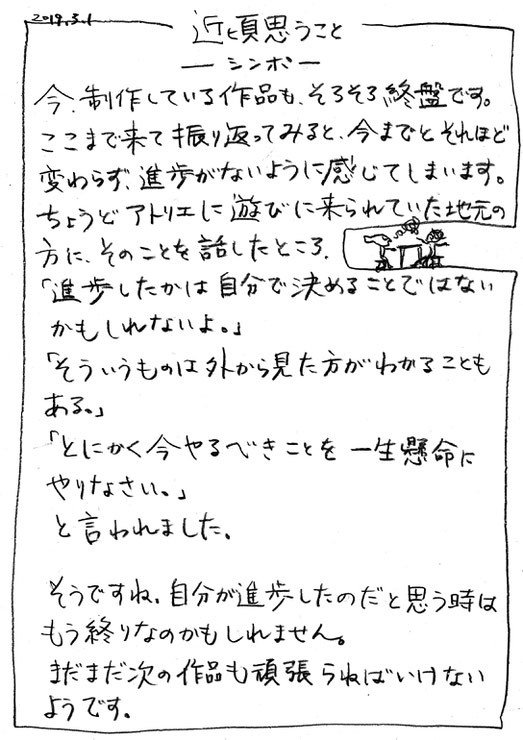 2019.3.1
近頃思うこと
— シンポ —
今、制作している作品も、そろそろ終盤です。
ここまで来て振り返ってみると、今までとそれほど
変わらず、進歩がないように感じてしまいます。
ちょうどアトリエに遊びに来られていた地元の
方に、そのことを話したところ、
「進歩したかは自分で決めることではない
かもしれないよ。」
「そういうものは外から見た方がわかることも
ある。」
「とにかく今やるべきことを一生懸命に
やりなさい。」
と言われました。
そうですね。自分が進歩したのだと思う時は
もう終りなのかもしれません。
まだまだ次の作品も頑張らねばいけない
ようです。